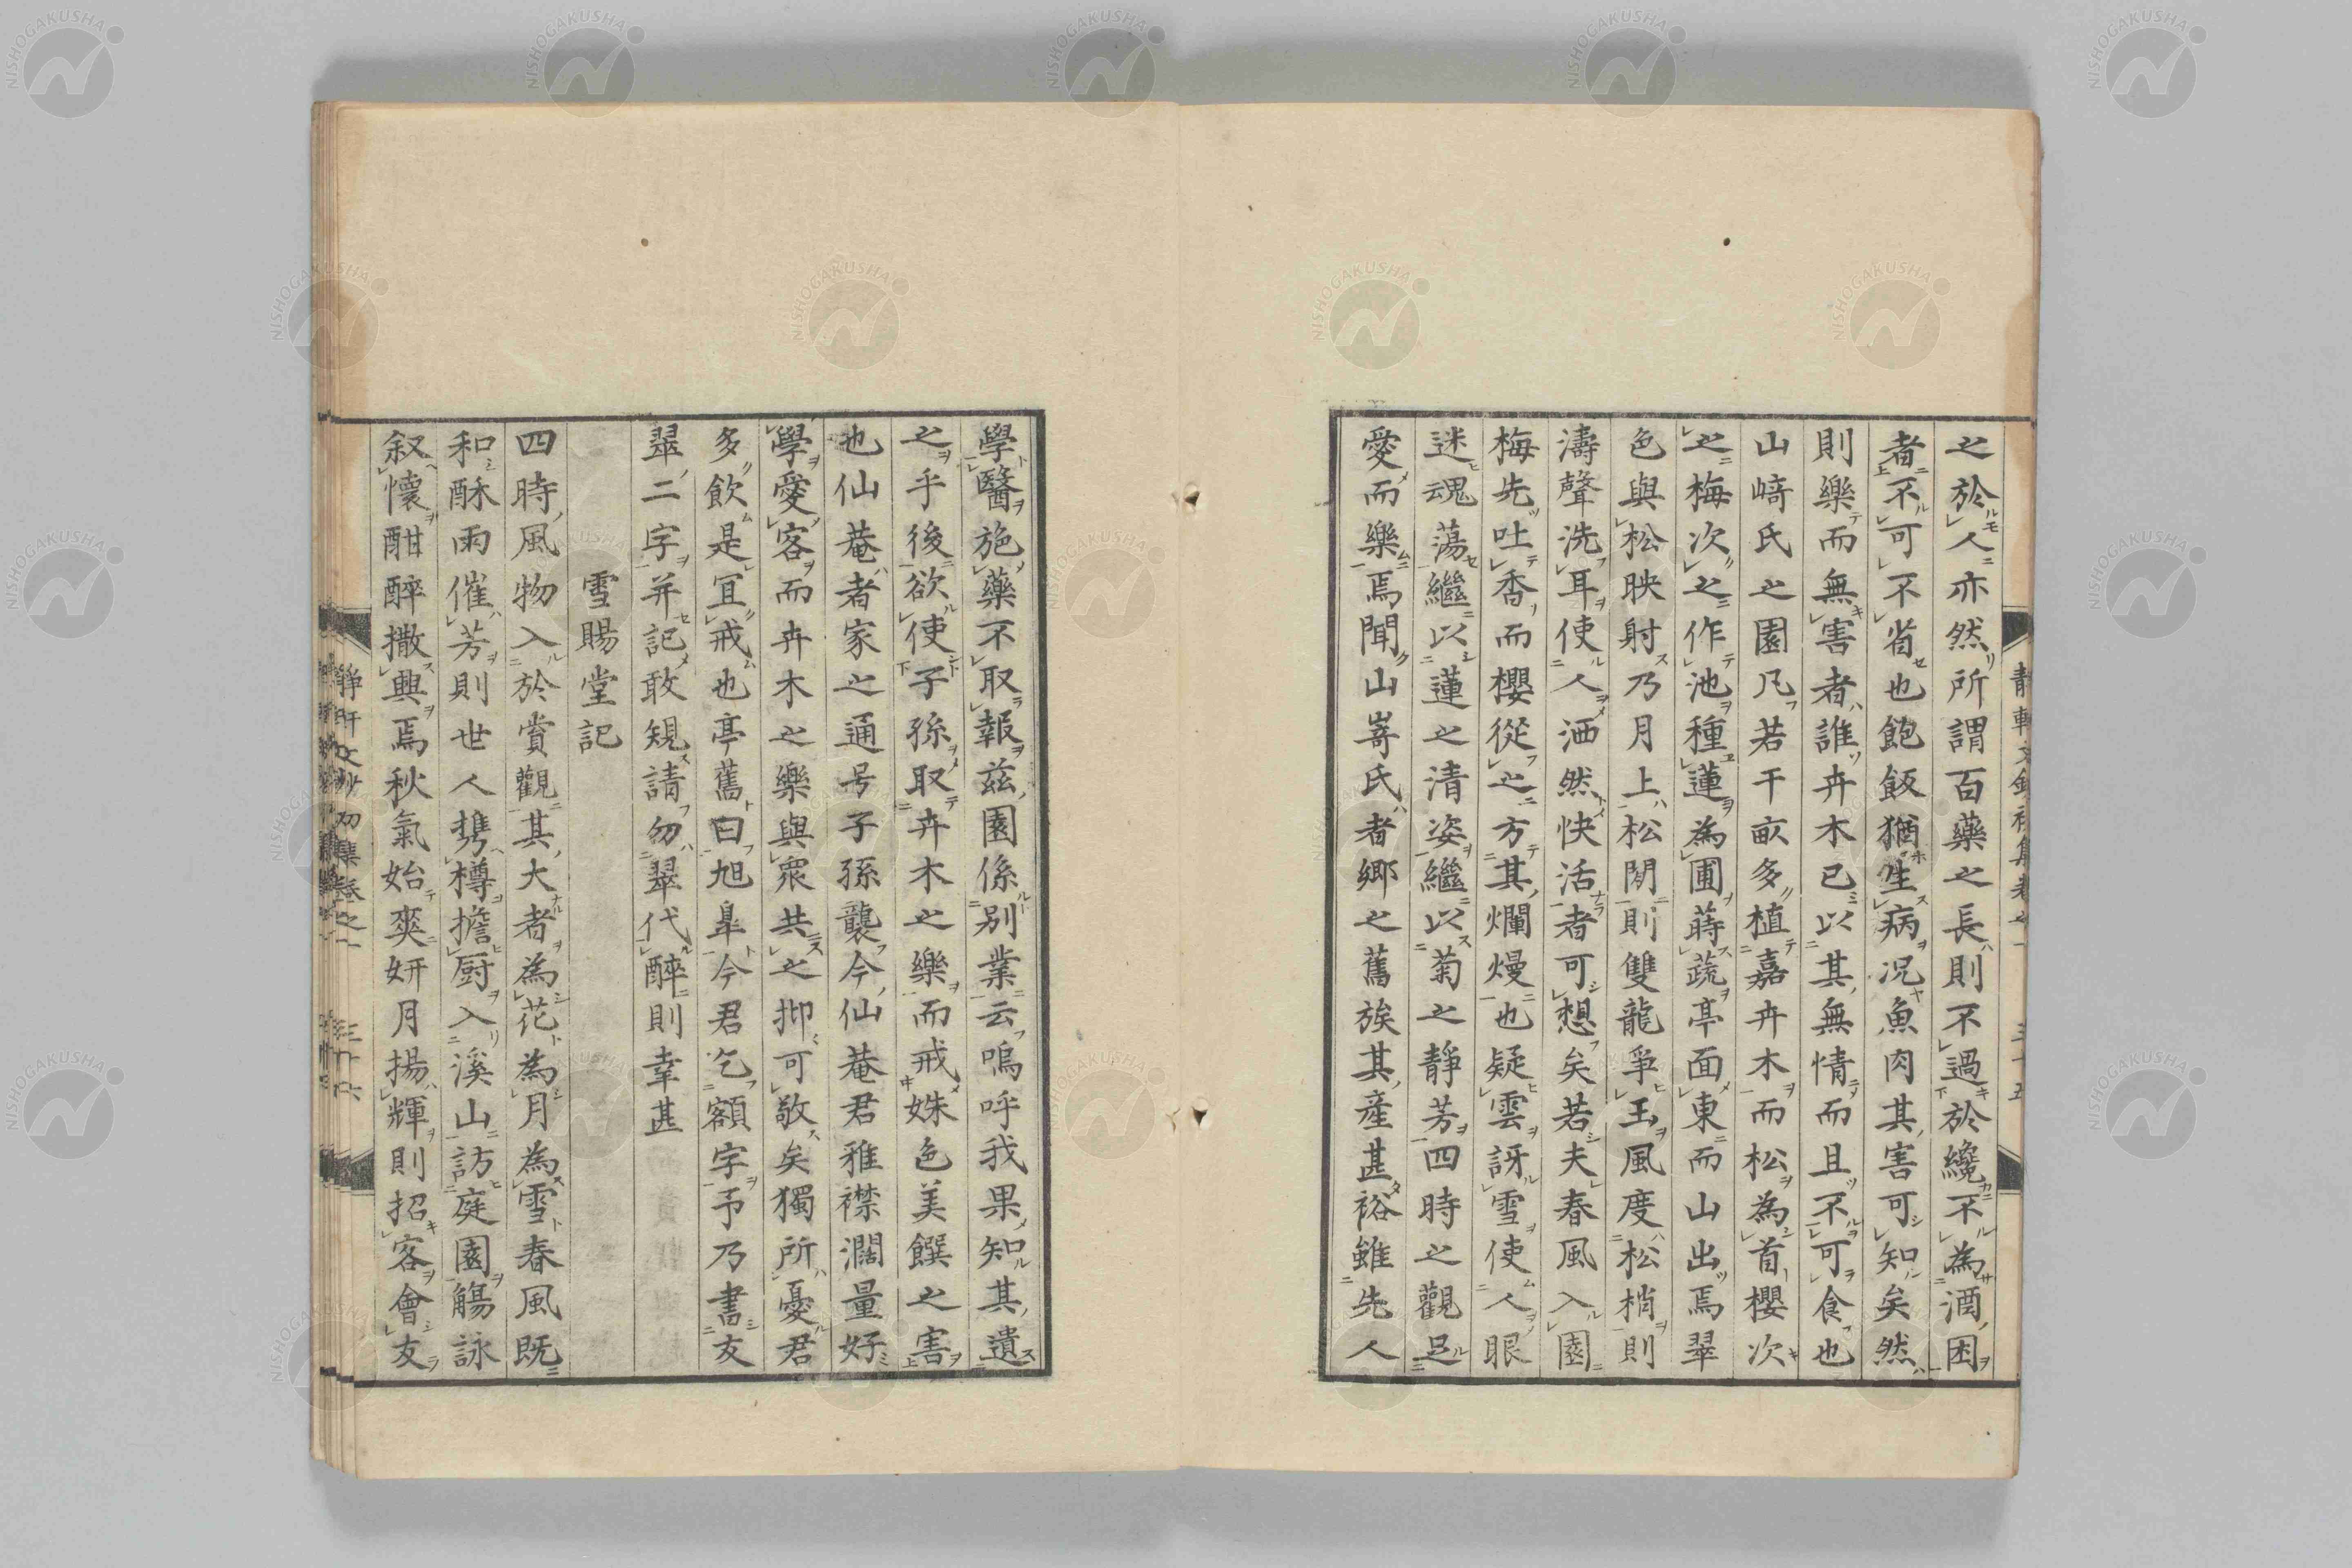 之於人亦然所謂百藥之長則不過於纔不為酒困
者不可不省也飽飯猶生病況魚肉其害可知矣然
則樂而無害者誰卉木已以其無情而且不可食也
山﨑氏之園凡若干畝多植嘉卉木而松為首櫻次
之梅次之作池種蓮為圃蒔蔬亭面東而山出焉翠
色與松映射乃月上松間則雙龍爭玉風度松梢則
濤聲洗耳使人洒然快活者可想矣若夫春風入園
梅先吐香而櫻從之方其爛熳也疑雲訝雪使人眼
迷魂蕩繼以蓮之清姿繼以菊之靜芳四時之觀足
愛而樂焉聞山嵜氏者鄉之舊族其産甚裕雖先人
學醫施藥不取報茲園係別業云嗚呼我果知其遺
之乎後欲使子孫取卉木之樂而戒姝色美饌之害
也仙菴者家之通号子孫襲今仙菴君雅襟濶量好
學愛客而卉木之樂與衆共之抑可敬矣獨所憂君
多飲是宜戒也亭舊曰旭皐今君乞額字予乃書友
翠二字并記敢規請勿翠代醉則幸甚
雪賜堂記
四時風物入於賞觀其大者為花為月為雪春風既
和酥雨催芳則世人携樽擔厨入溪山訪庭園觴詠
叙懷酣醉撒興焉秋氣始爽姸月揚輝則招客會友